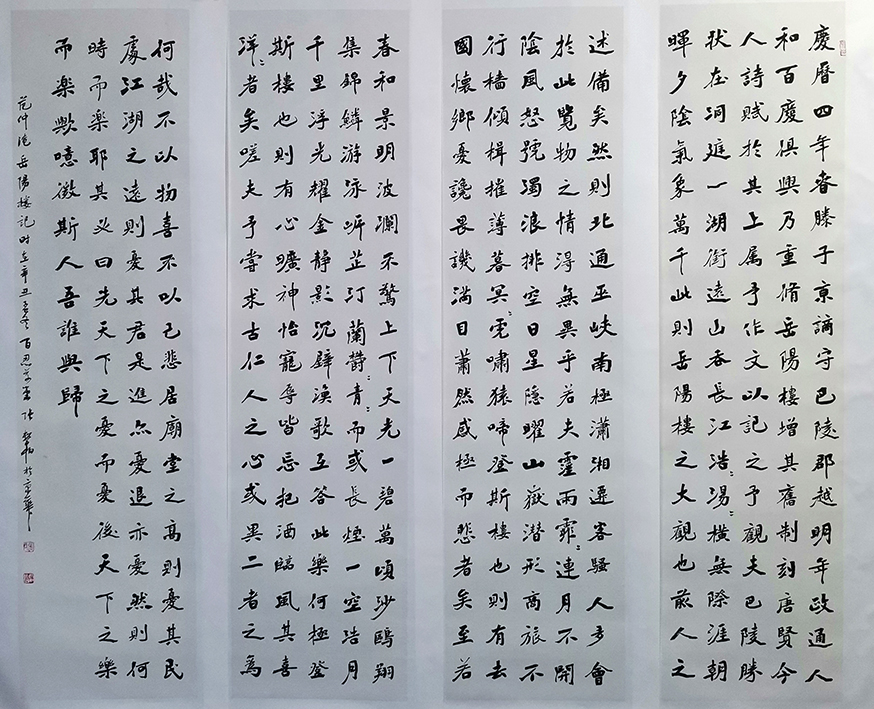 慶曆四年春滕子京謫守巴陵郡越明年政通人
和百廢俱興乃重脩岳陽樓增其舊制刻唐賢今
人詩賦於其上属予作文以記之予觀夫巴陵勝
狀在洞庭一湖銜遠山吞長江浩〻湯〻橫無際涯朝
暉夕陰氣象萬千此則岳陽樓之大觀也前人之
述備矣然則北通巫峽南極瀟湘遷客騷人多會
於此覽物之情得無異乎若夫霪雨霏〻連月不開
陰風怒號濁浪排空日星隱曜山嶽潛形商旅不
行檣傾楫摧薄暮冥〻虎嘯猿啼登斯樓也則有去
國懷鄉憂讒畏譏滿目蕭然感極而悲者矣至若
春和景明波瀾不驚上下天光一碧萬頃沙鷗翔
集錦鱗游泳岸芷汀蘭欝〻青〻而或長煙一空浩月
千里浮光耀金靜影沉璧漁歌互答此樂何極登
斯樓也則有心曠神怡寵辱皆忘把酒臨風其喜
洋〻者矣嗟夫予嘗求古仁人之心或異二者之為
何哉不以物喜不以己悲居廟堂之高則憂其民
處江湖之遠則憂其君是進亦憂退亦憂然則何
時而樂耶其必曰先天下之憂而憂後天下之樂
而樂歟噫微斯人吾誰與歸
范仲淹岳陽樓記時在辛丑孟冬百忍堂主張於京華